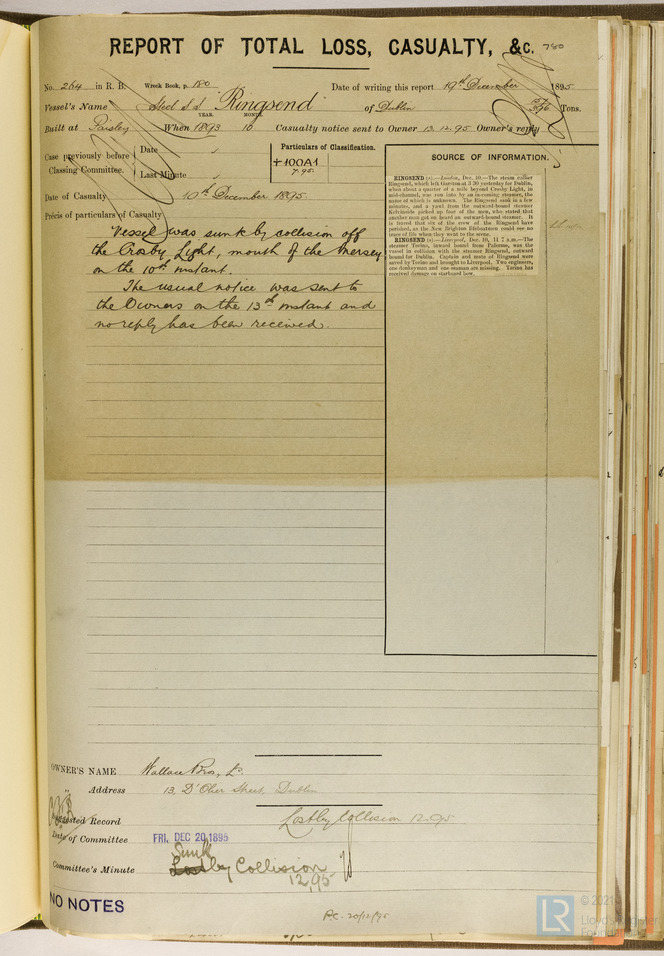 REPORT OF TOTAL LOSS, CASUALTY, &c. 780
No. 264 in R. B. Wreck Book, p. 180 Date of writing this report 19th December 1895
Vessel's Name Steel S.S. "Ringsend" of Dublin Tons.
YEAR. MONTH.
Built at Paisley When 1893 10 Casualty notice sent to Owner 13.12.95 Owner's reply
Case previously before Classing Committee.
Date
Last Minute
Particulars of Classification.
+100A1
7.95
Date of Casualty 10th December 1895.
Précis of particulars of Casualty
Vessel was sunk by collision off
the Crosby Light, mouth of the Mersey
on the 10th instant.
The usual notice was sent to
the Owners on the 13th instant and
no reply has been received.
SOURCE OF INFORMATION.
RINGSEND (s).—London, Dec. 10.—The steam collier
Ringsend, which left Garston at 3 30 yesterday for Dublin,
when about a quarter of a mile beyond Crosby Light, in
mid-channel, was run into by an incoming steamer, the
name of which is unknown. The Ringsend sank in a few
minutes, and a yawl from the outward-bound steamer
Kelvinside picked up four of the men, who stated that
another man got on board an outward-bound steamer. It
is feared that six of the crew of the Ringsend have
perished, as the New Brighton lifeboatmen could see no
trace of life when they went to the scene.
RINGSEND (s).—Liverpool, Dec. 10, 11 7 a.m.—The
steamer Torino, inward bound from Palermo, was the
vessel in collision with the steamer Ringsend, outward
bound for Dublin. Captain and mate of Ringsend were
saved by Torino and brought to Liverpool. Two engineers,
one donkeyman and one seaman are missing. Torino has
received damage on starboard bow.
OWNER'S NAME Wallace Bros, Ld.
" Address 13, D'Olier Street, Dublin
Record Lost by Collision 12.95
Date of Committee FRI. DEC 20 1895
Sunk
Committee's Minute Lost by Collision
12,95
NO NOTES
R.C. 20/12/95
LR
© 2021
Lloyd's Register
Foundation